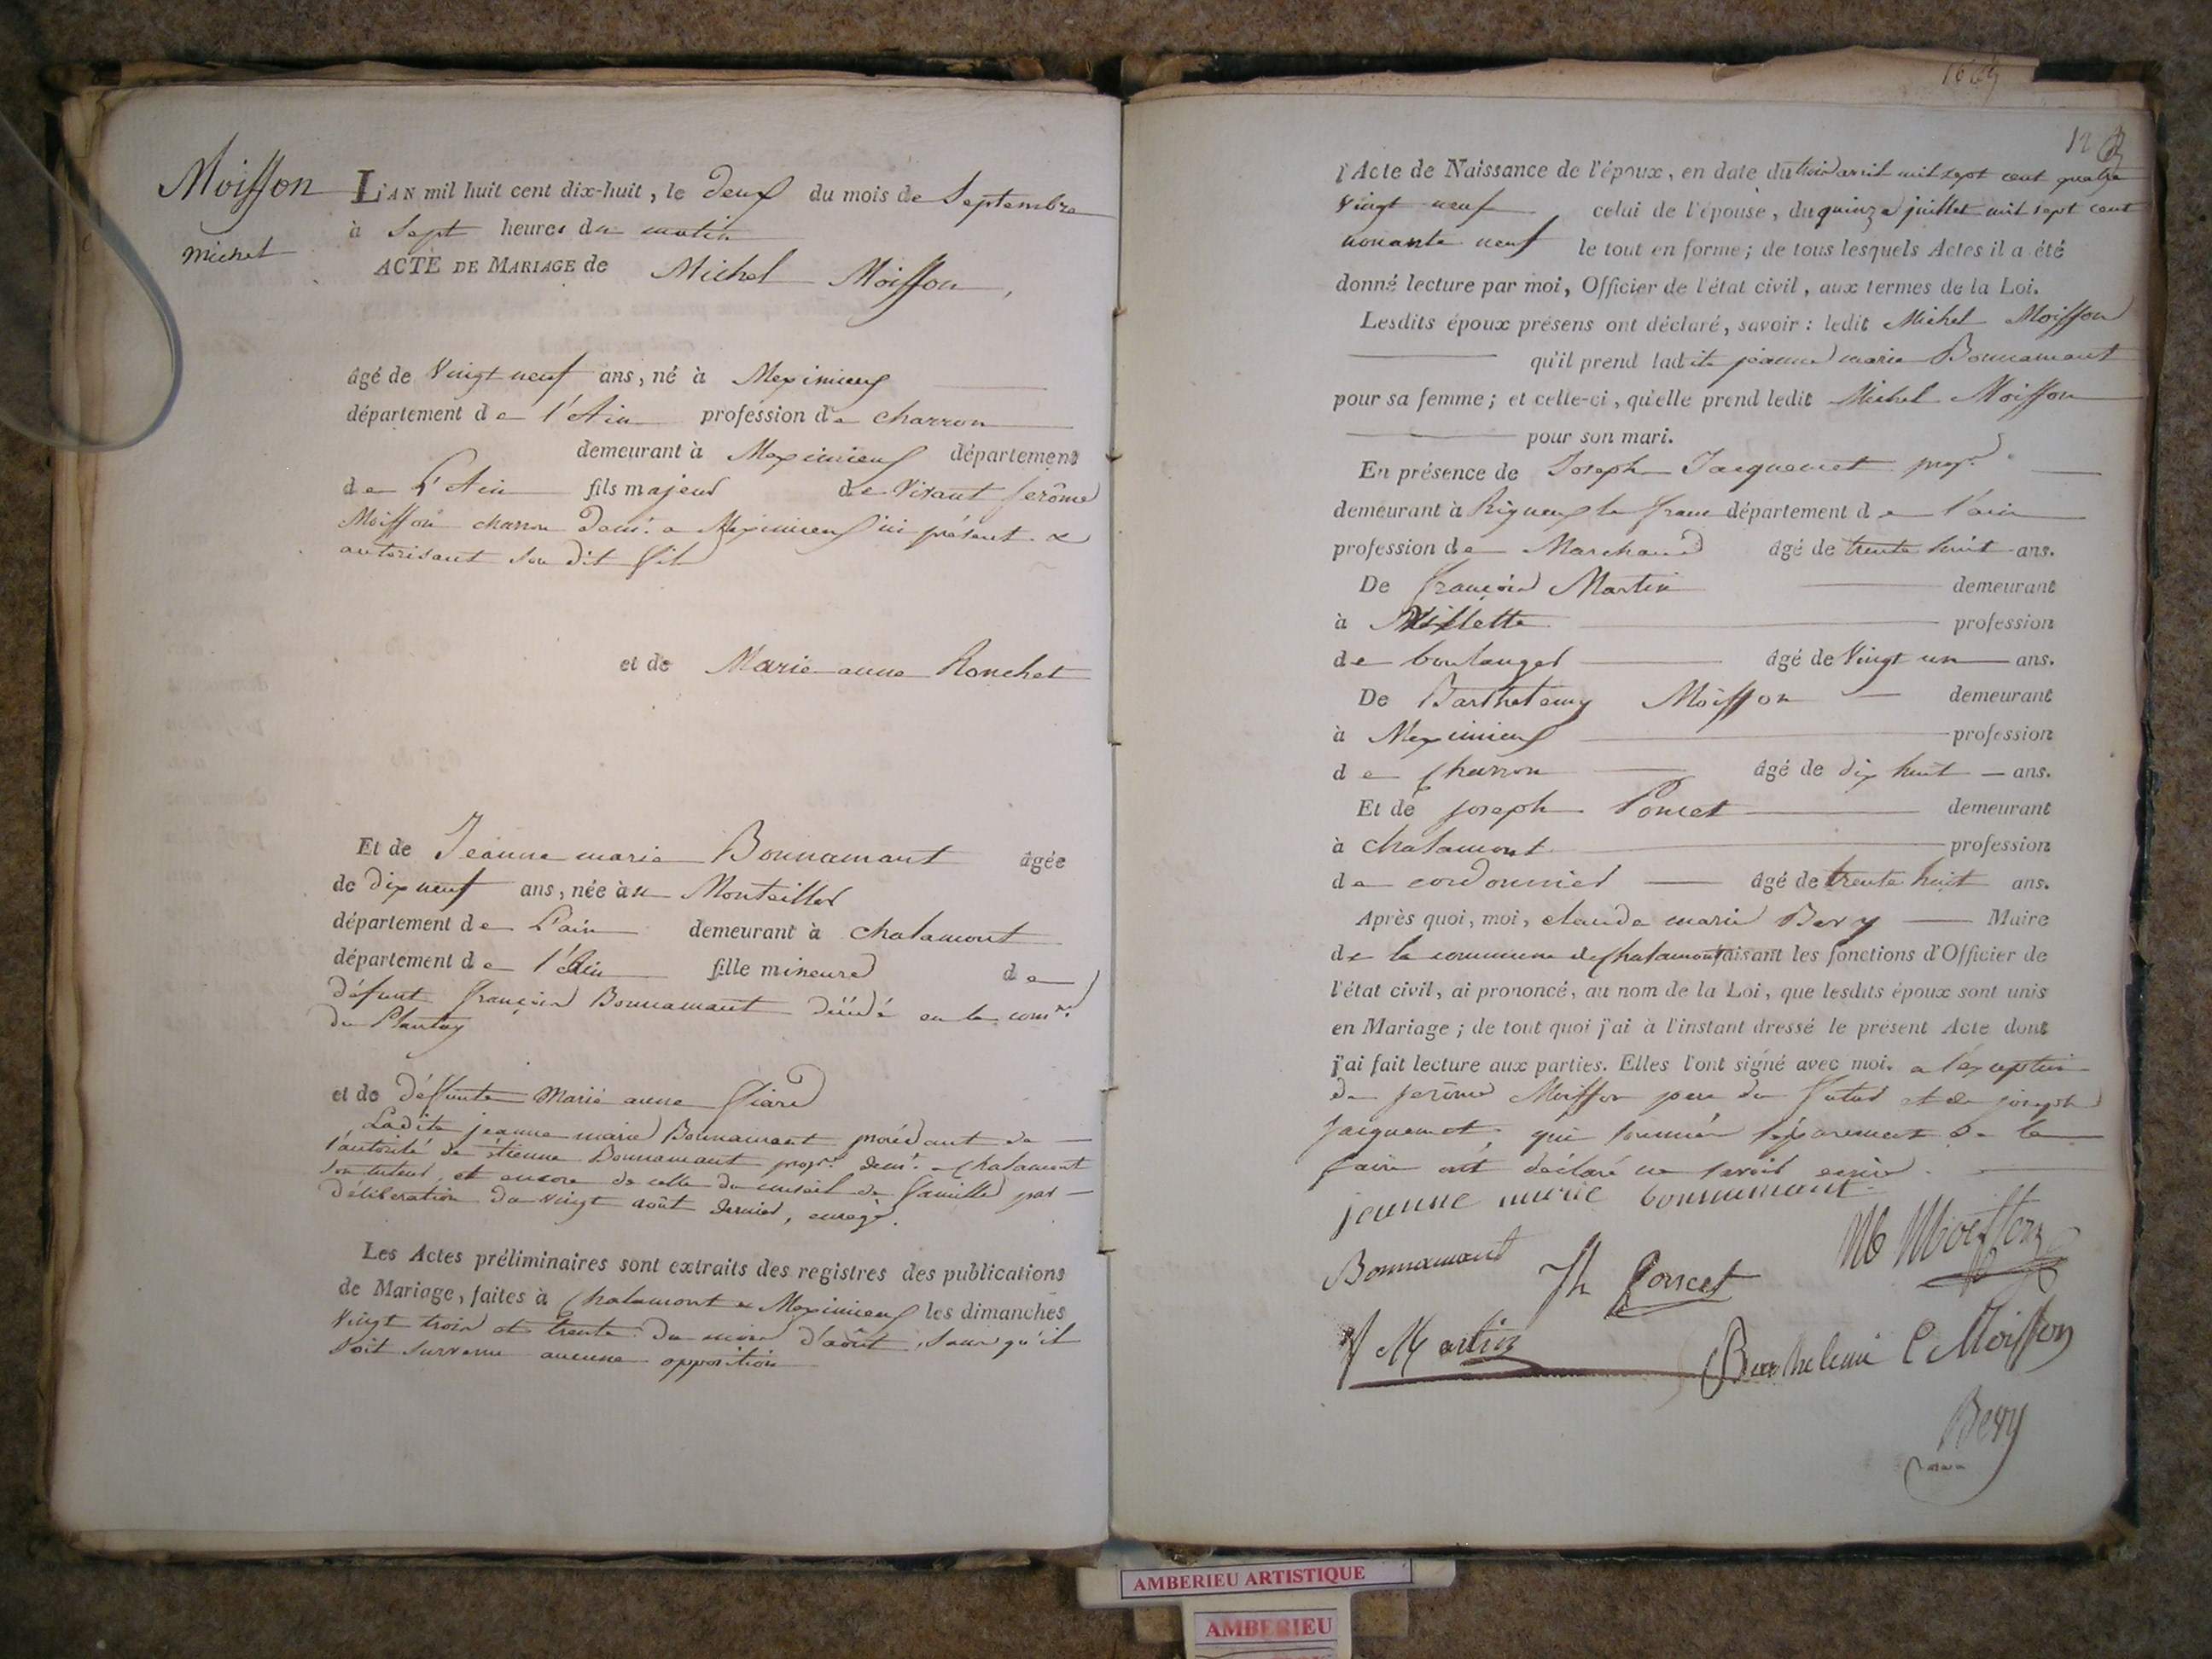 Moisson
michel
L'AN mil huit cent dix-huit, le deux du mois de Septembre
à Sept heures du matin
ACTE DE MARIAGE de Michel Moisson,
âgé de Vingt neuf ans, né à Meximieux
département de l'Ain profession de charron
demeurant à Meximieux département
de L'Ain fils majeur de Vivant Jerôme
Moisson charron demt. a Meximieux ici présent &
autorisant son dit fils
et de Marie anne Ronchet
Et de Jeanne marie Bonnamant âgée
de dix neuf ans, née au Monteiller
département de L'ain demeurant à chalamont
département de l'Ain fille mineure de
défunt françois Bonnamant décédé en la comne.
du Plantay
et de déffunte Marie anne
Ladite jeanne marie Bonnamant procédant de
l'autorité de étienne Bonnamant propre. demt. a Chalamont
son tuteur, et encore de celle du conseil de famille par
déliberation du vingt août dernier, enregé.
Les Actes préliminaires sont extraits des registres des publications
de Mariage, faites à Chalamont & Meximieux les dimanches
Vingt trois et trente du mois d'août, sans qu'il
soit survenu aucune opposition
l'Acte de Naissance de l'époux, en date du trois avril mil sept cent quatre
Vingt neuf celui de l'épouse, du quinze juillet mil sept cent
nonante neuf le tout en forme; de tous lesquels Actes il a été
donné lecture par moi, Officier de l'état civil, aux termes de la Loi.
Lesdits époux présens ont déclaré, savoir: ledit Michel Moisson
qu'il prend ladite jeanne marie Bonnamant
pour sa femme; et celle-ci, qu'elle prend ledit Michel Moisson
pour son mari.
En présence de Joseph Jacquemet propr.
demeurant à Rigneux le franc département de l'ain
profession de Marchand âgé de trente huit ans.
De françois Martin demeurant
à Villette profession
de boulanger âgé de Vingt un ans.
De Barthelemy Moisson demeurant
à Meximieux profession
de Charron âgé de dix huit ans.
Et de Joseph Poncet demeurant
à chalamont profession
de cordonnier âgé de trente huit ans.
Après quoi, moi, claude marie Bevy Maire
de la commune de Chalamont faisant les fonctions d'Officier de
l'état civil, ai prononcé, au nom de la Loi, que lesdits époux sont unis
en Mariage; de tout quoi j'ai à l'instant dressé le présent Acte dont
j'ai fait lecture aux parties. Elles l'ont signé avec moi. a l'exception
de Jerôme Moisson pere du futur et de joseph
Jacquemet, qui sommés séparement de le
faire ont déclaré ne savoir ecrire.
jeanne marie bonnamant
Bonnamant Jh Poncet M Moisson
f Martin Barthelemi Moisson
Bevy
AMBERIEU ARTISTIQUE
AMBERIEU